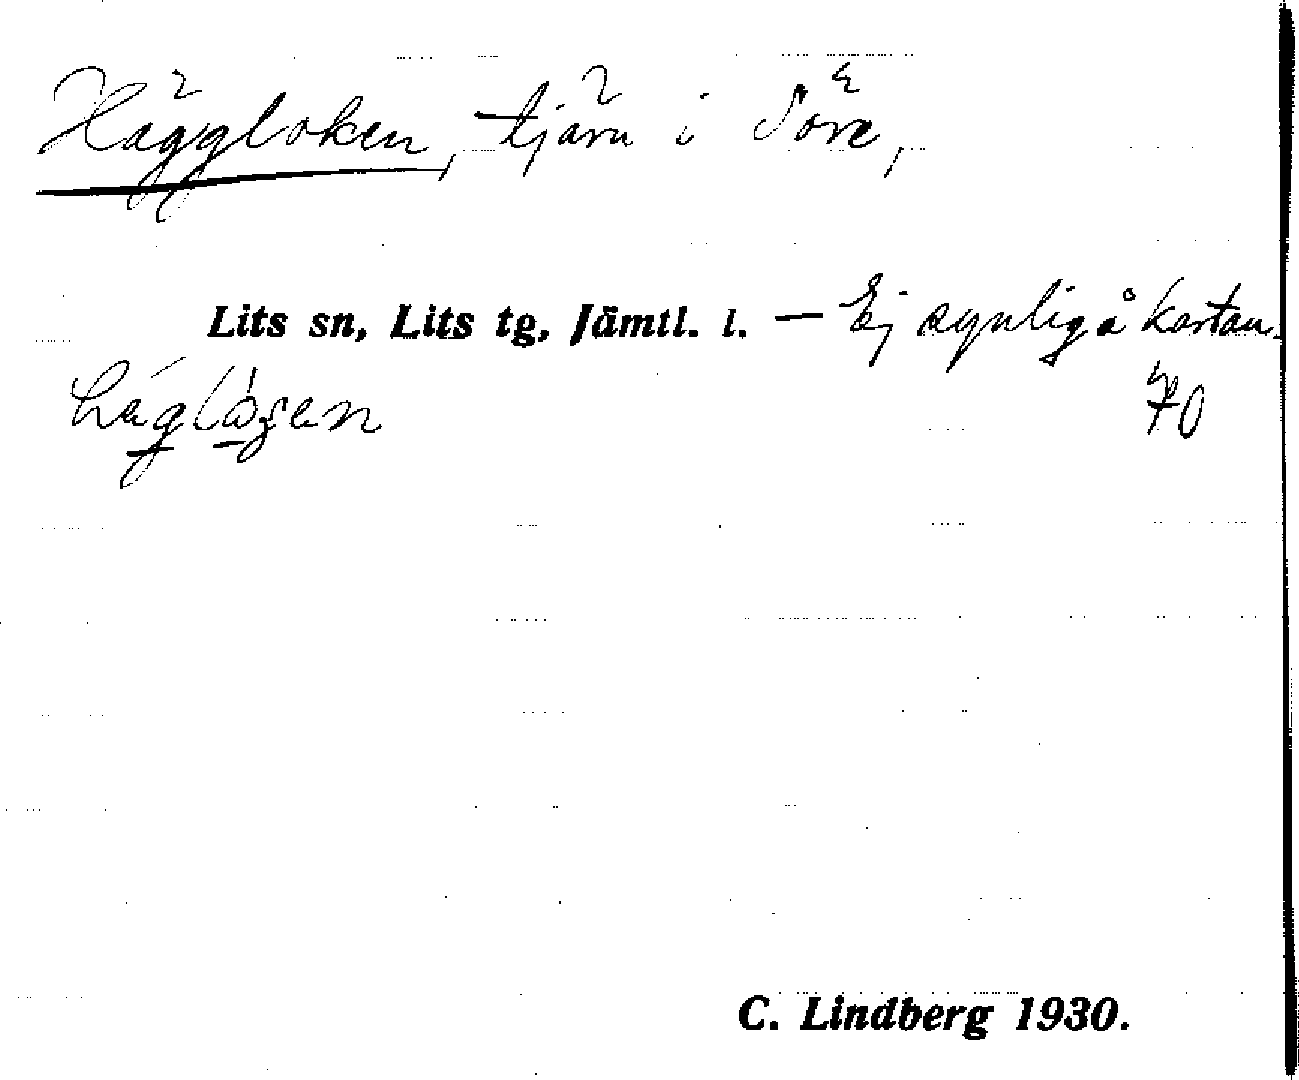 Häggloken, tjärn i Söre,
Lits sn, Lits tg, Jämtl. l. — Ej synlig å kartan.
70
C. Lindberg 1930.